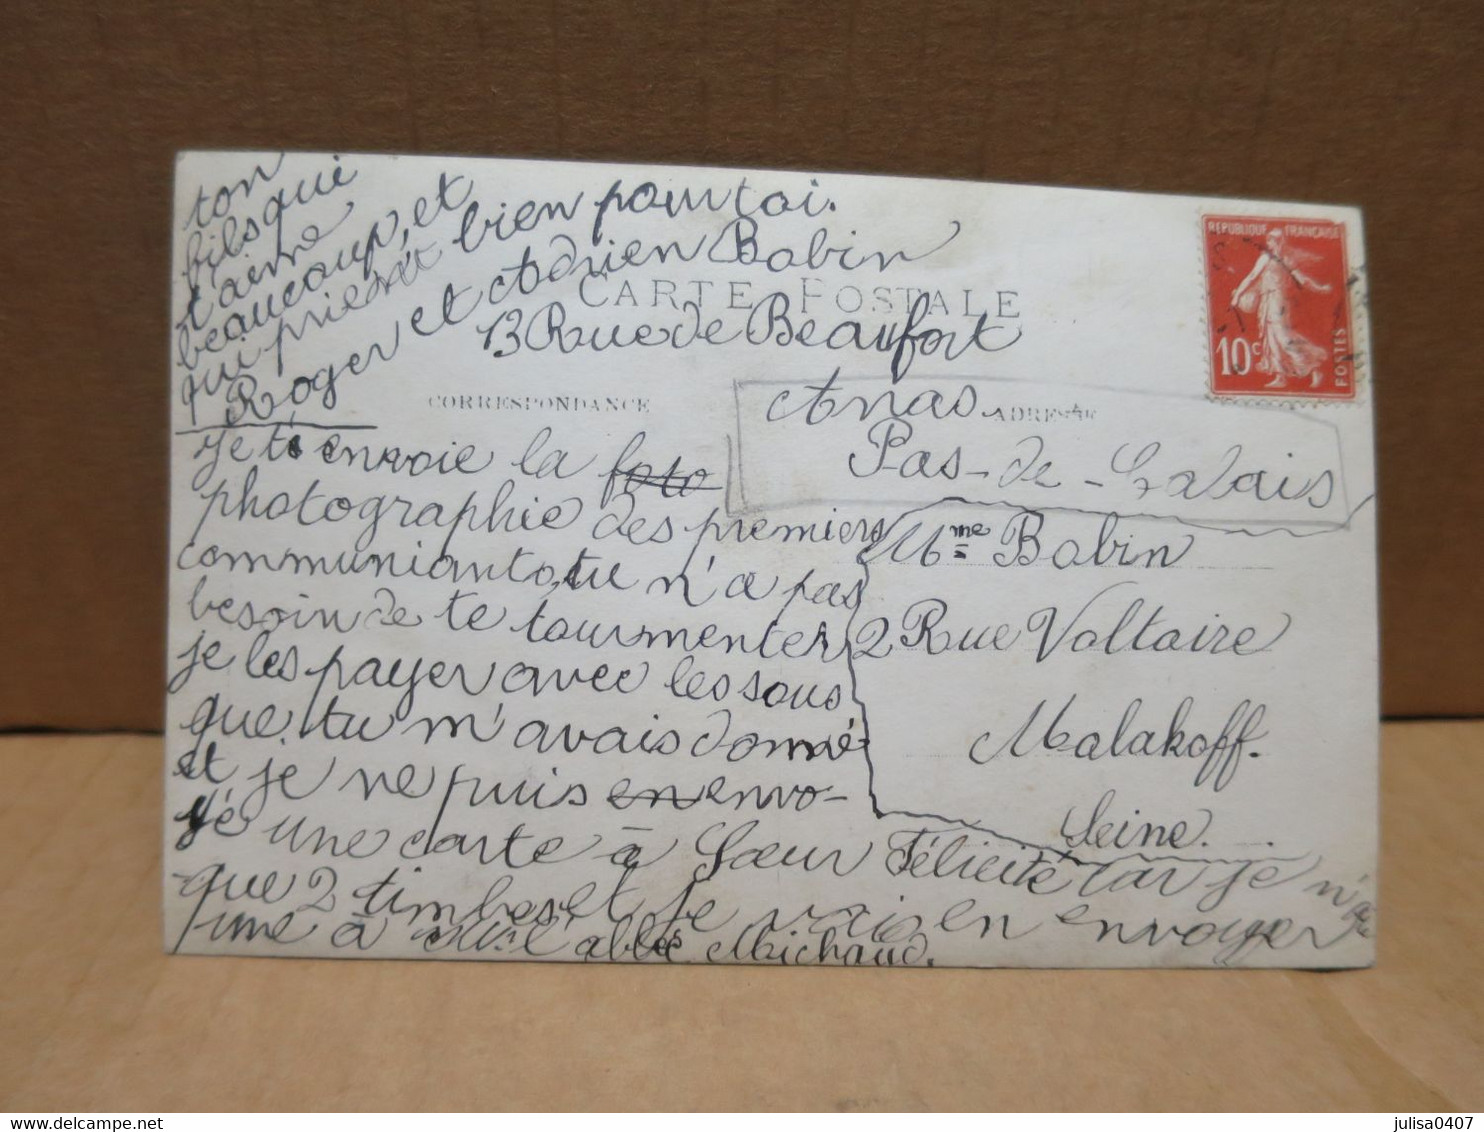 ton
fils qui
t'aime
beaucoup, et
qui prie bien pour toi.
Roger et Adrien Babin
CARTE POSTALE
13 Rue de Beaufort
Arras
Pas-de-Calais
CORRESPONDANCE
ADRESSE
REPUBLIQUE FRANÇAISE
10c
POSTES
je t'envoie la foto
photographie des premiers
communiants, tu n'a pas
besoin de te tourmenter
je les payer avec les sous
que tu m'avais donné
et je ne puis en envo-
yé une carte à Sœur Félicité car je n'ai
que 2 timbes et je vais en envoyer
une à Mr l'abbé Michaud.
Mme Babin
2 Rue Voltaire
Malakoff.
Seine.
julisa0407